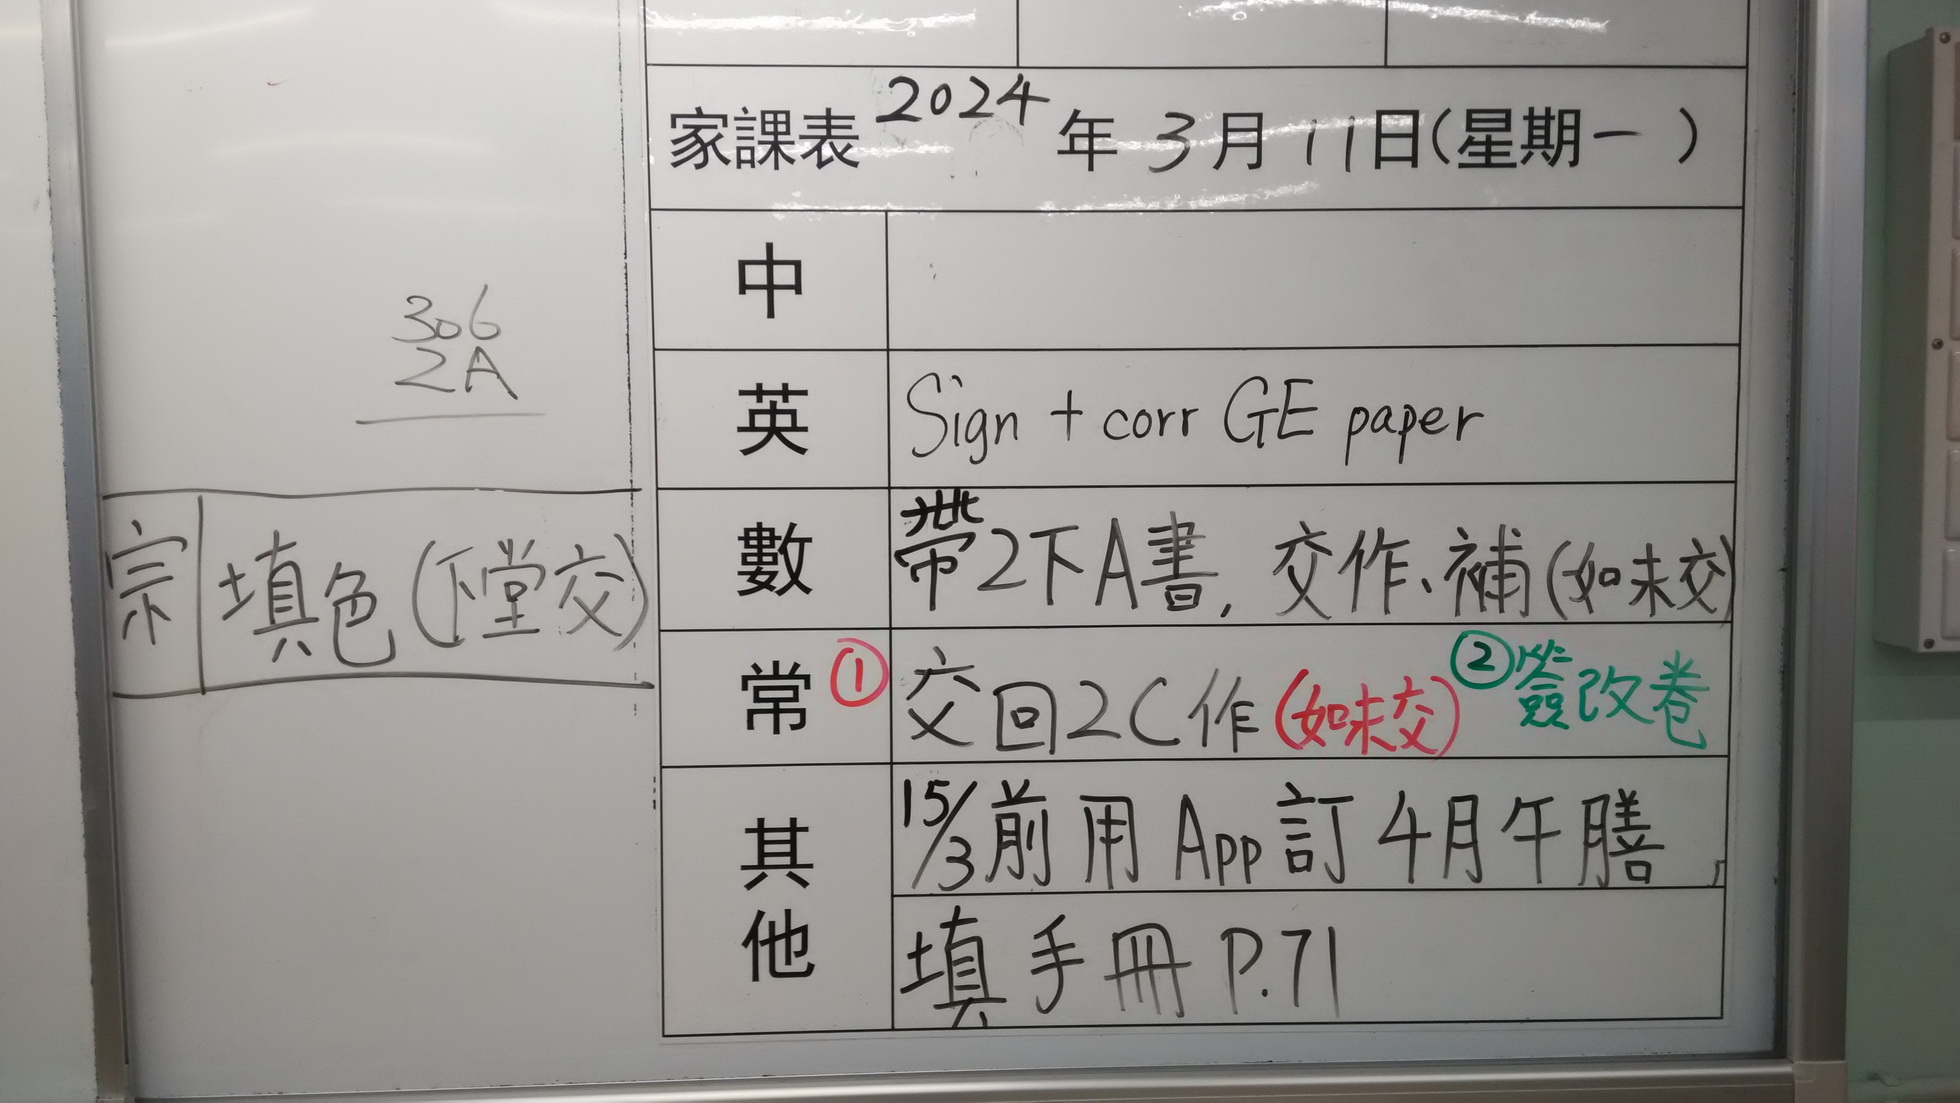 家課表 2024 年 3 月 11 日(星期一 )
中
英 Sign + corr GE paper
數 帶2下A書, 交作、補(如未交)
常 ① 交回2C作(如未交) ②簽改卷
其他 15/3前用App訂4月午膳,
填手冊 P.71
306
2A
宗 填色(下堂交)